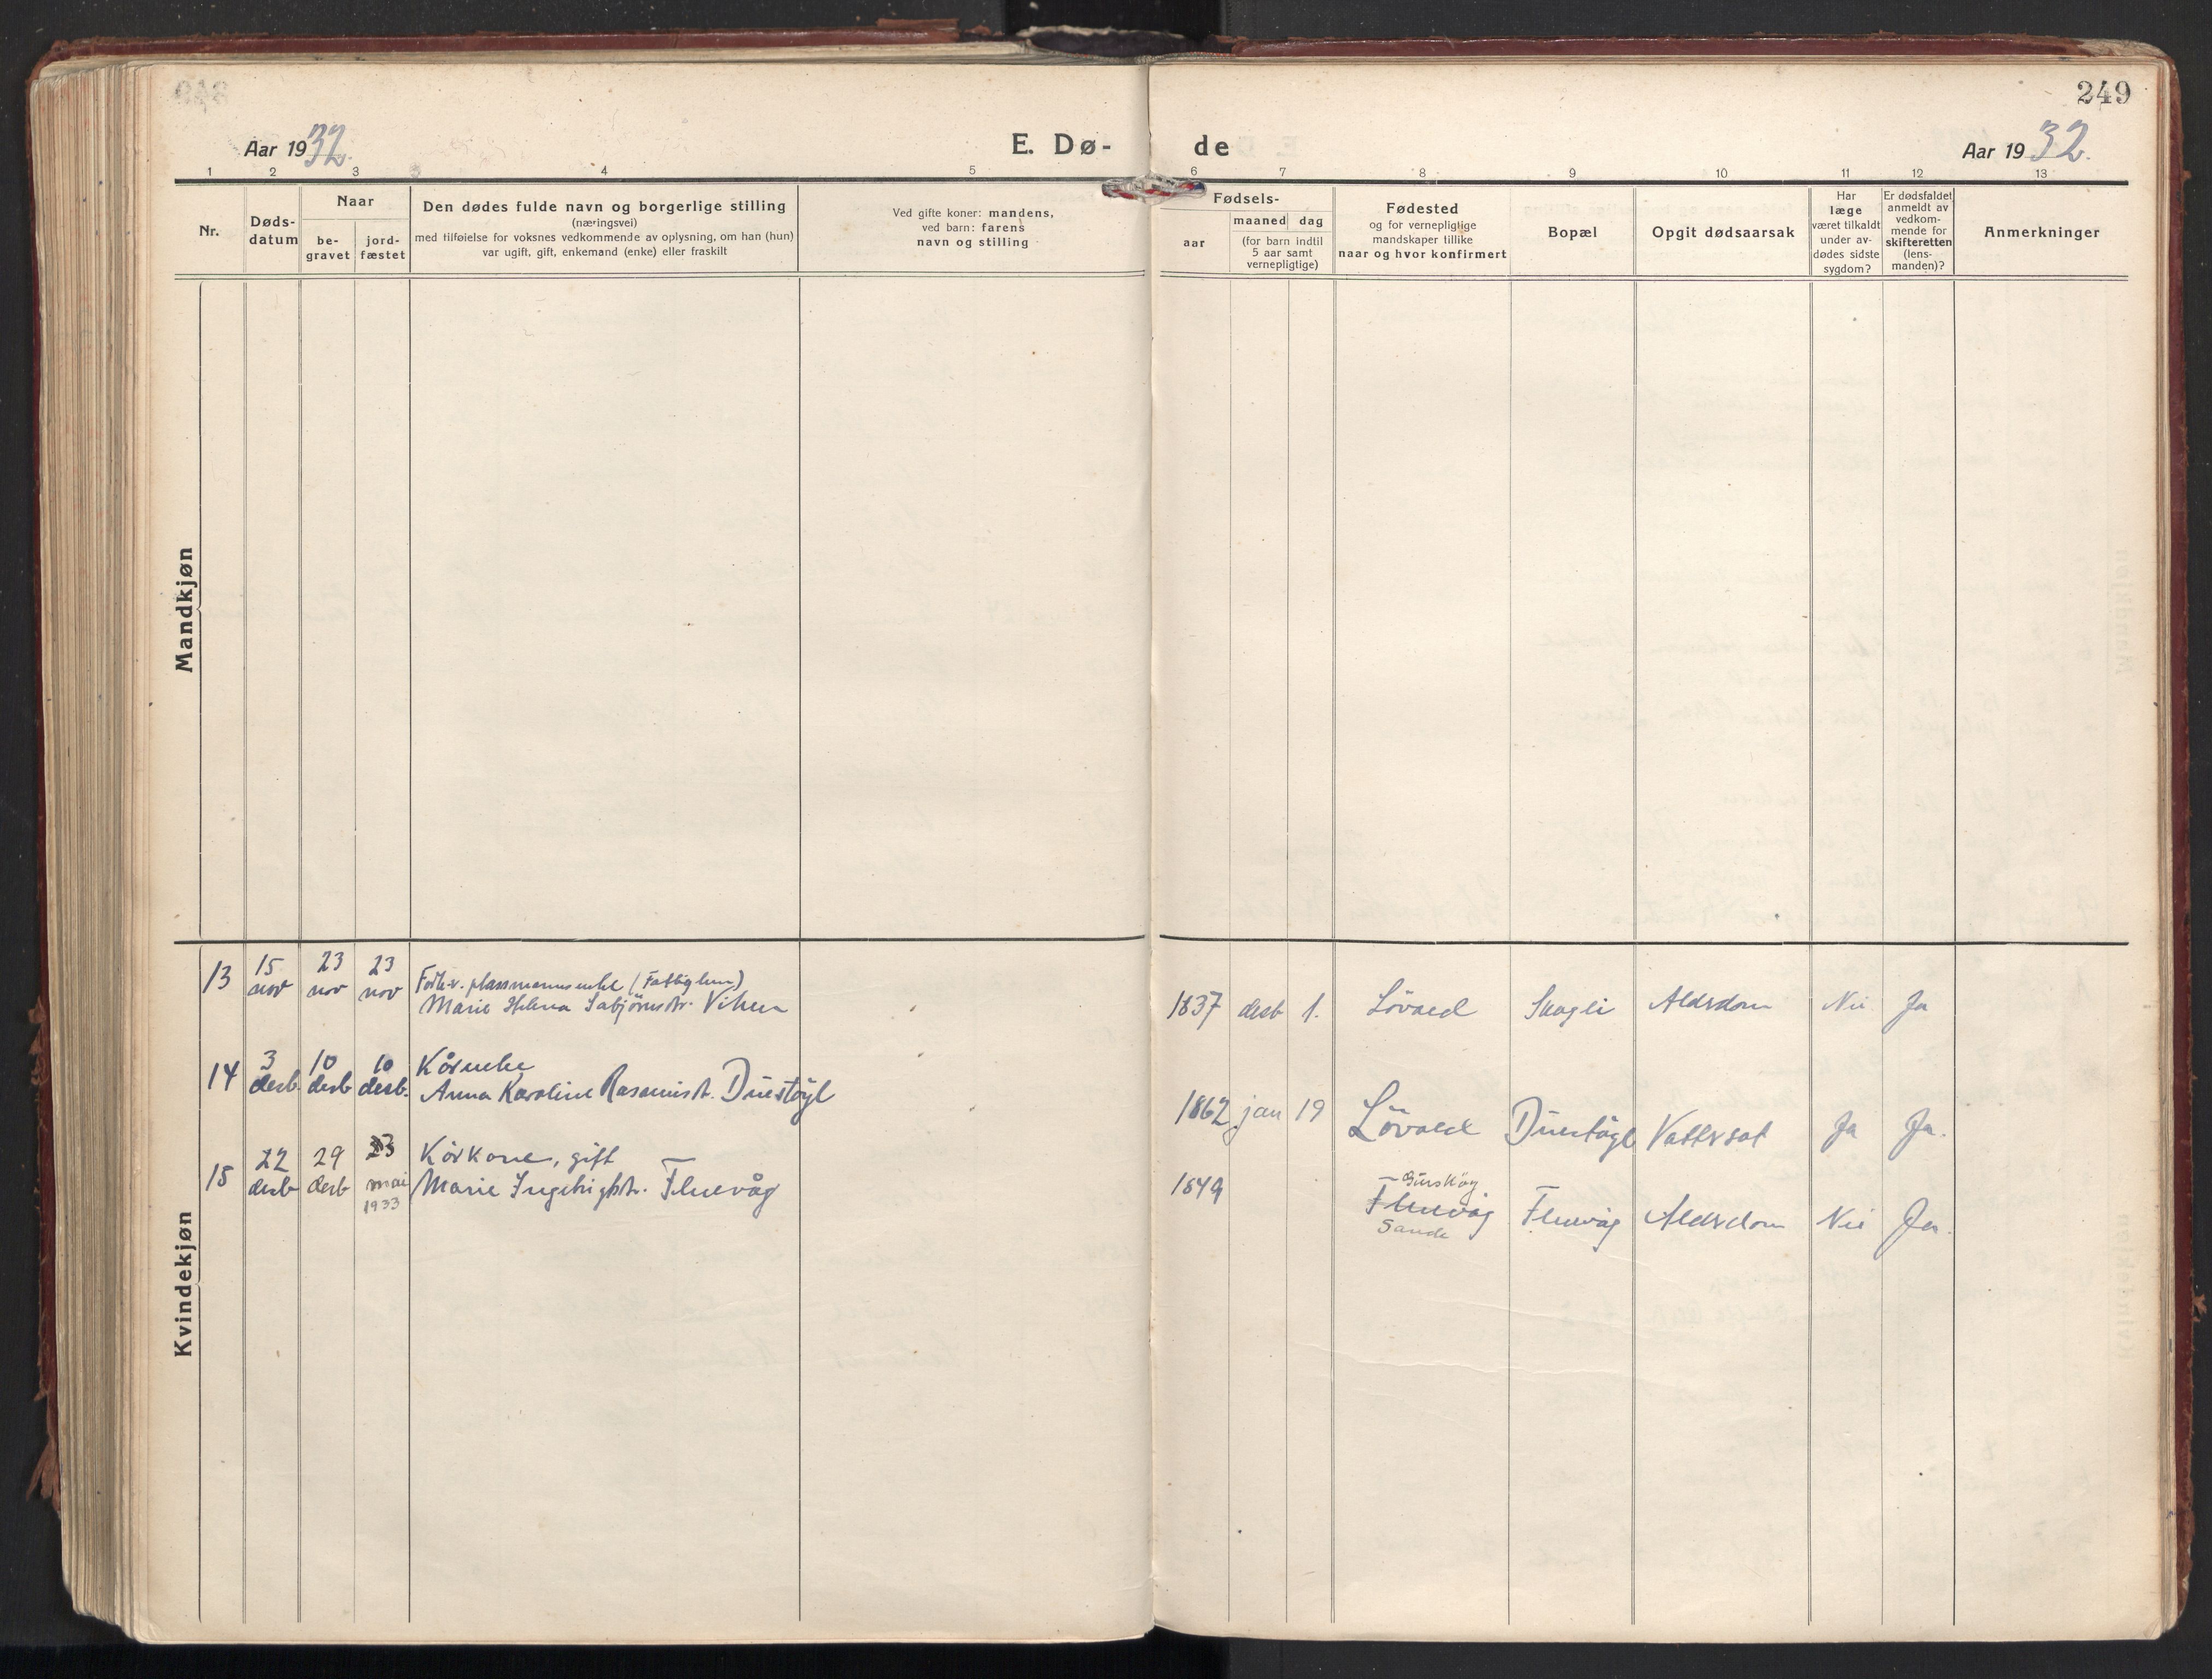 249
Aar 1932.
E. Dø-
de
Aar 1932.
1 2 3 4 5 6 7 8 9 10 11 12 13
Nr.
Døds-
datum
Naar
be-
gravet
jord-
fæstet
Den dødes fulde navn og borgerlige stilling
(næringsvei)
med tilføielse for voksnes vedkommende av oplysning, om han (hun)
var ugift, gift, enkemand (enke) eller fraskilt
Ved gifte koner: mandens,
ved barn: farens
navn og stilling
Fødsels-
aar
maaned dag
(for barn indtil
5 aar samt
vernepligtige)
Fødested
og for vernepligtige
mandskaper tillike
naar og hvor konfirmert
Bopæl
Opgit dødsaarsak
Har
læge
været tilkaldt
under av-
dødes sidste
sygdom?
Er dødsfaldet
anmeldt av
vedkom-
mende for
skifteretten
(lens-
manden)?
Anmerkninger
Mandkjøn
Kvindekjøn
13 15 nov 23 nov 23 nov
(Fattiglem)
Marie Helena
1837 desb 1. Aldsdom Nei Ja
14 3 desb. 10 desb 10 desb.
Kårenke
Anna Karoline Rasmusdt. Duestøyl
1862 jan 19 Duestøyl Vattersot Ja Ja.
15 22 desb 29 desb 23 mai 1933
Kårkone, gift
Marie Ingebrigtdt. Fluevåg
1849 Gurskøy
Fluevåg Fluevåg Aldsdom Nei Ja.
Sande